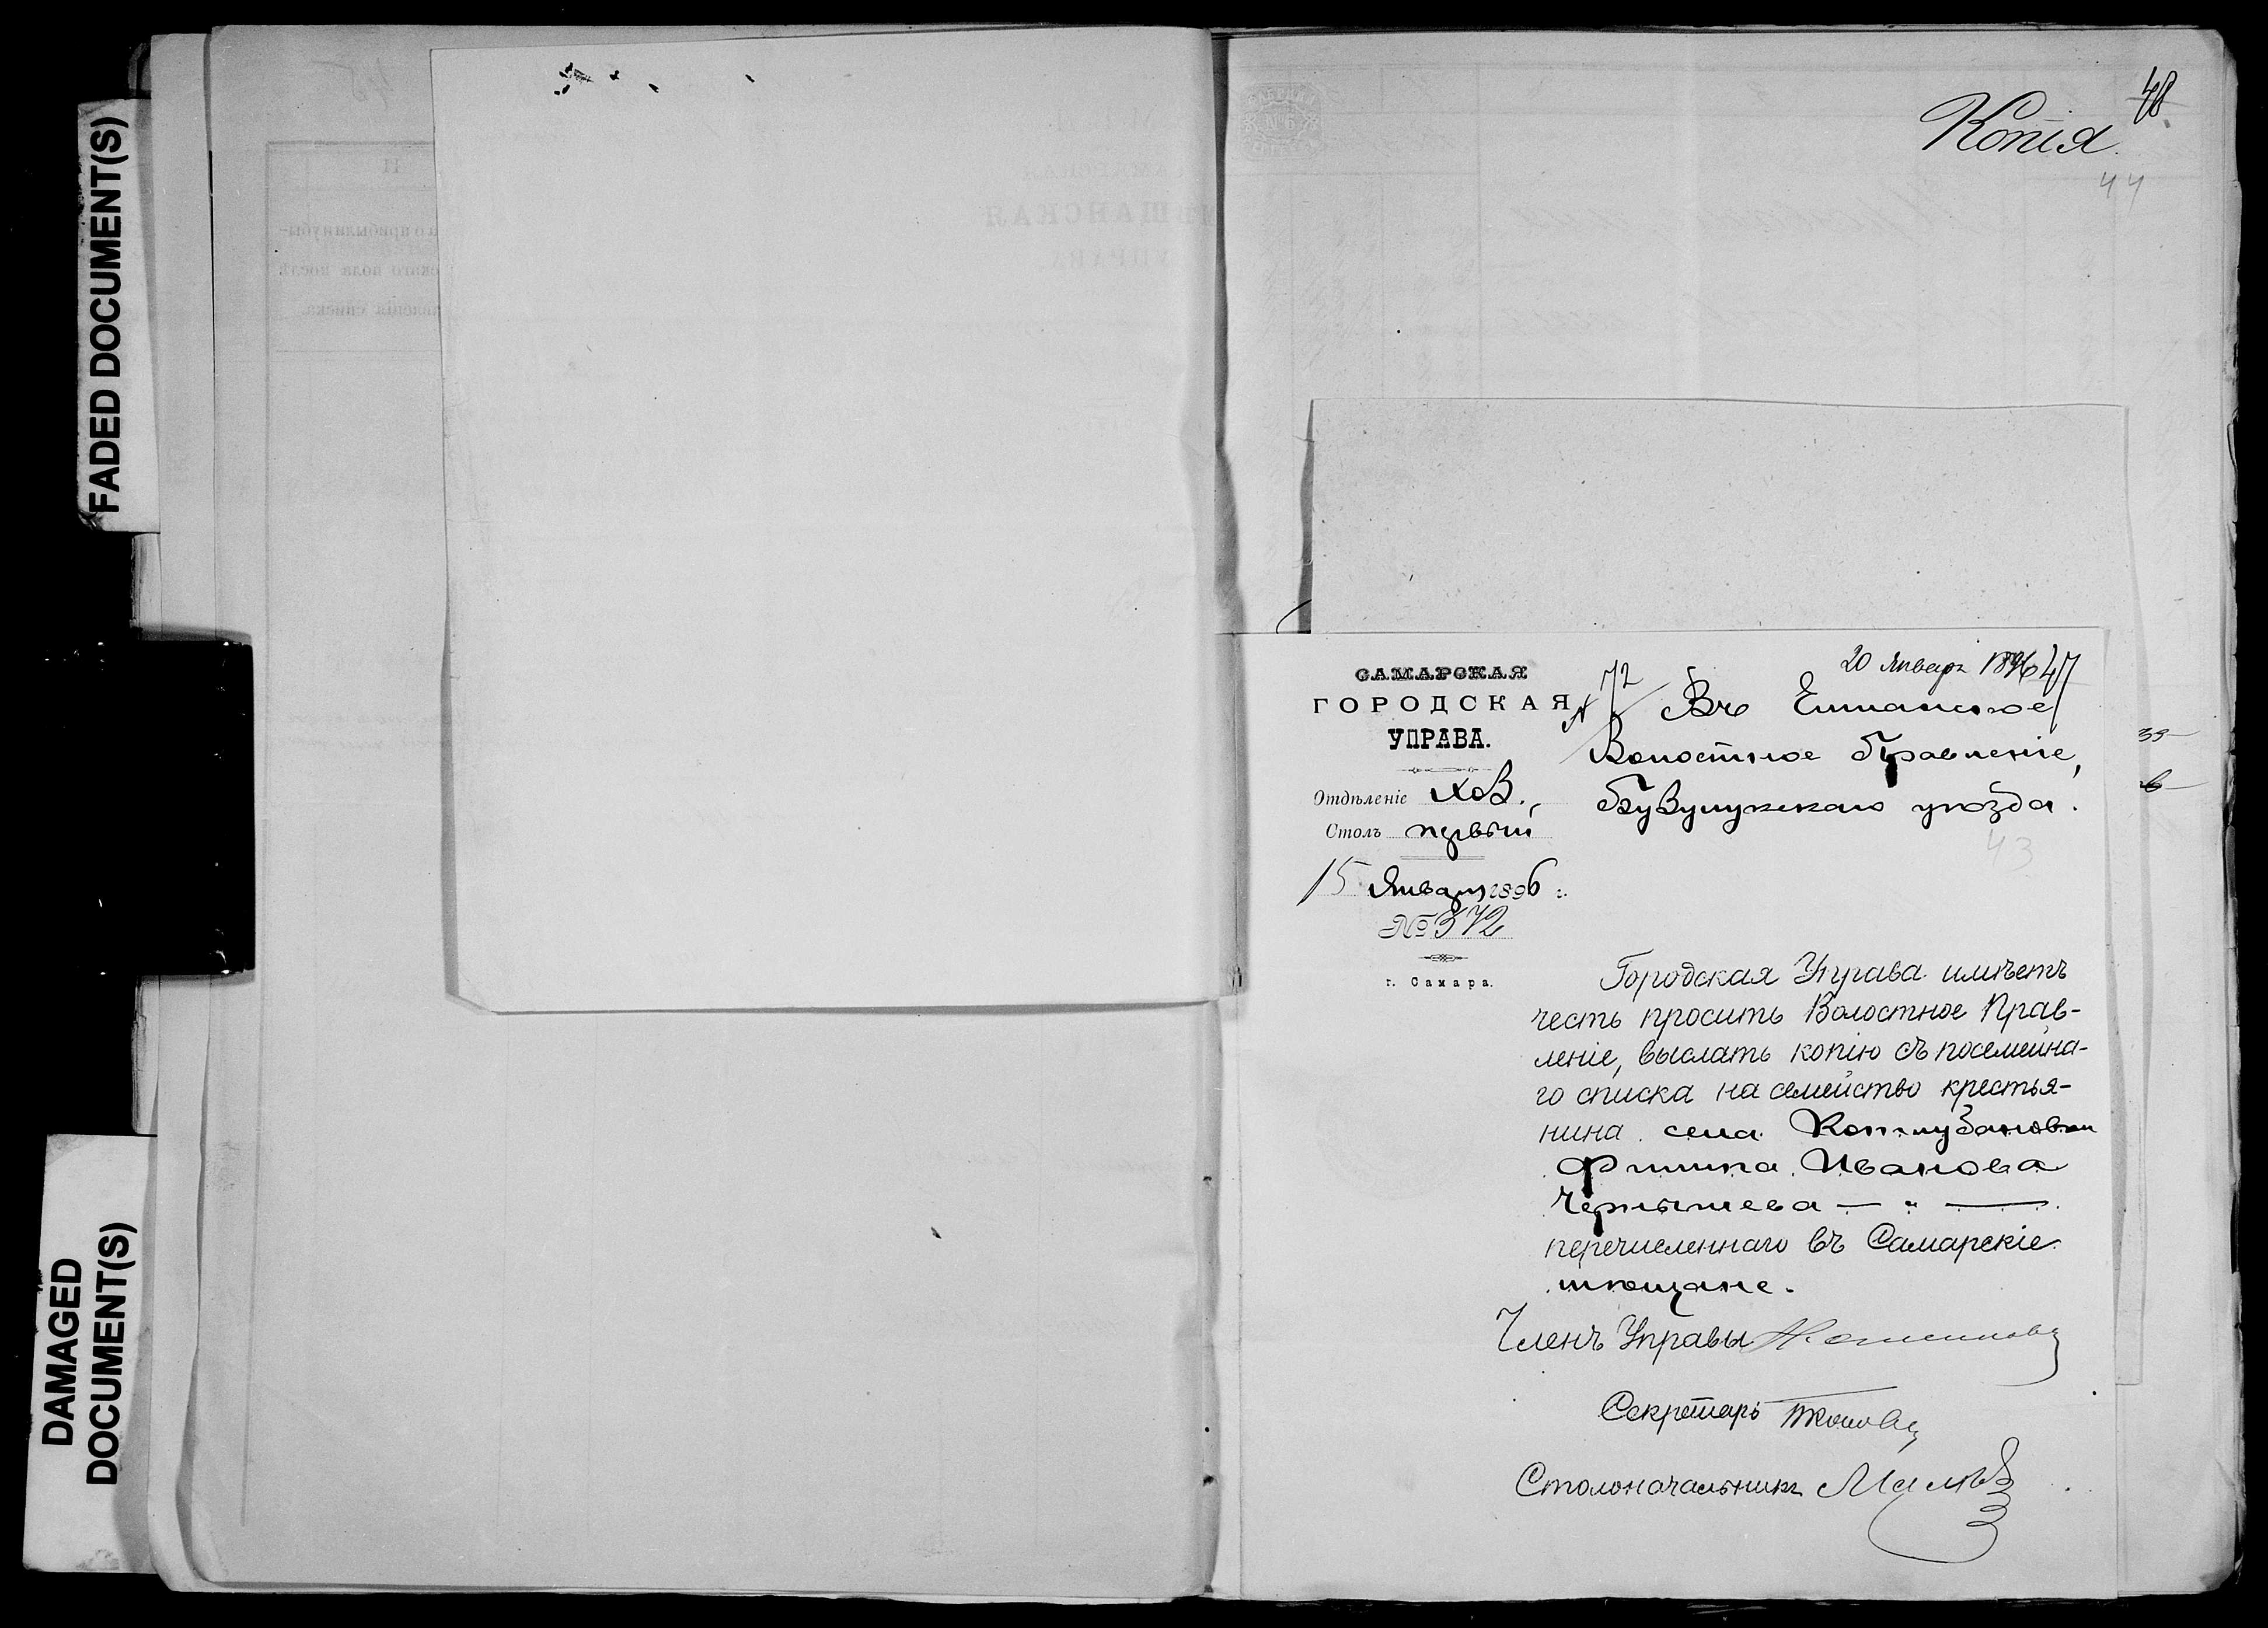 FADED DOCUMENT(S)
DAMAGED
DOCUMENT(S)
48
Копія.
44
20 Января 1896 47
САМАРСКАЯ
ГОРОДСКАЯ
УПРАВА.
№ 72
Въ
Волостное Правленіе,
Бузулукскаго уѣзда.
43
Отдѣленіе Хоз.,
Столъ первый
15 Января 1896 г.
№ 372
г. Самара.
Городская Управа имѣетъ
честь просить Волостное Прав-
леніе, выслать копію съ посемейна-
го списка на семейство крестья-
нина села Колтубановки
Филипа Иванова
Чернышева — " —
перечисленнаго въ Самарскіе
мѣщане.
Членъ Управы
Секретарь
Столоначальникъ
39